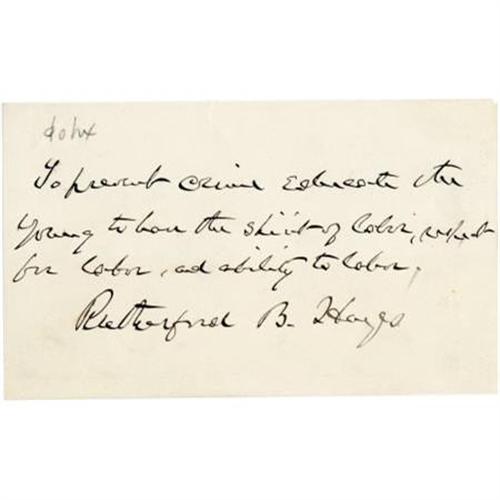 To prevent crime educate the
young to have the spirit of labor, respect
for labor, and ability to labor,
Rutherford B. Hayes